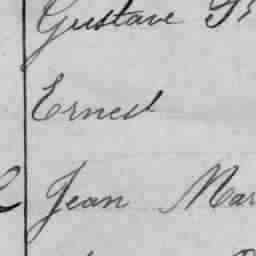 Gustave
Ernest
Jean Mar